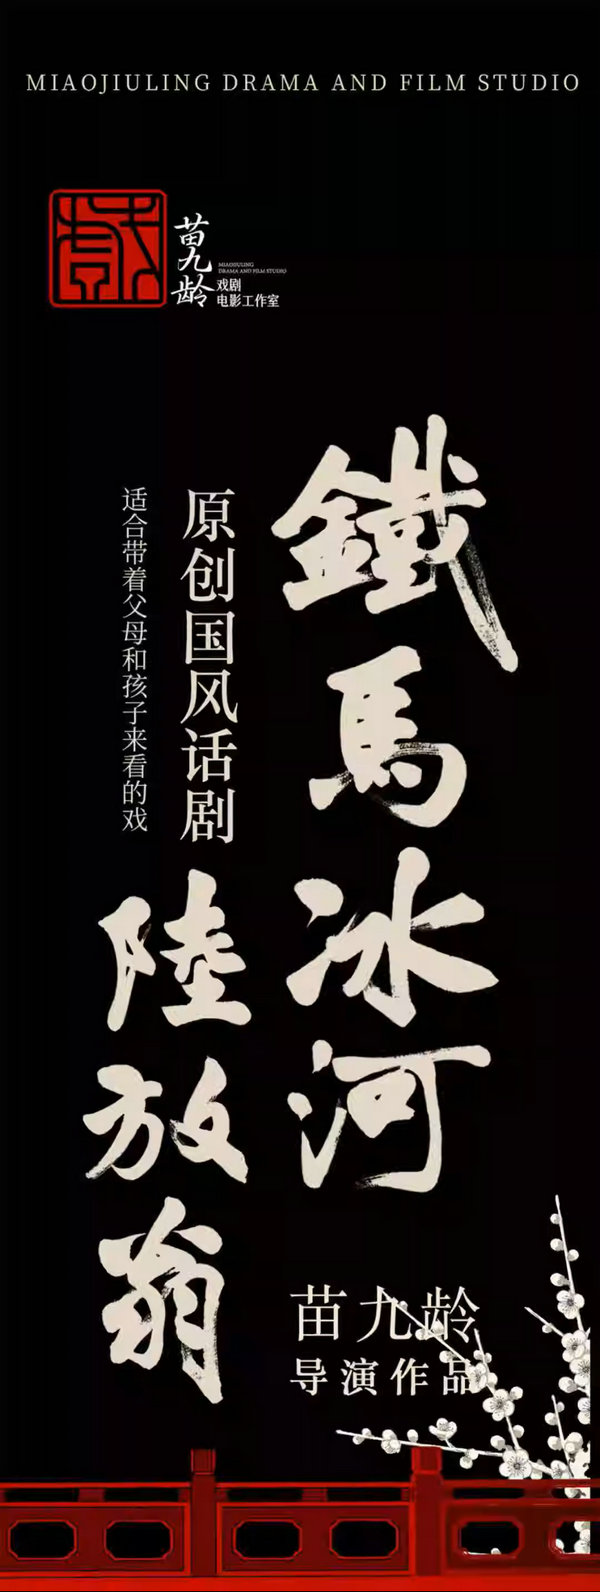 MIAOJIULING DRAMA AND FILM STUDIO
苗九龄
MIAOJIULING
DRAMA AND FILM STUDIO
戏剧
电影工作室
鐵馬冰河
原创国风话剧
陸放翁
适合带着父母和孩子来看的戏
苗九龄
导演作品